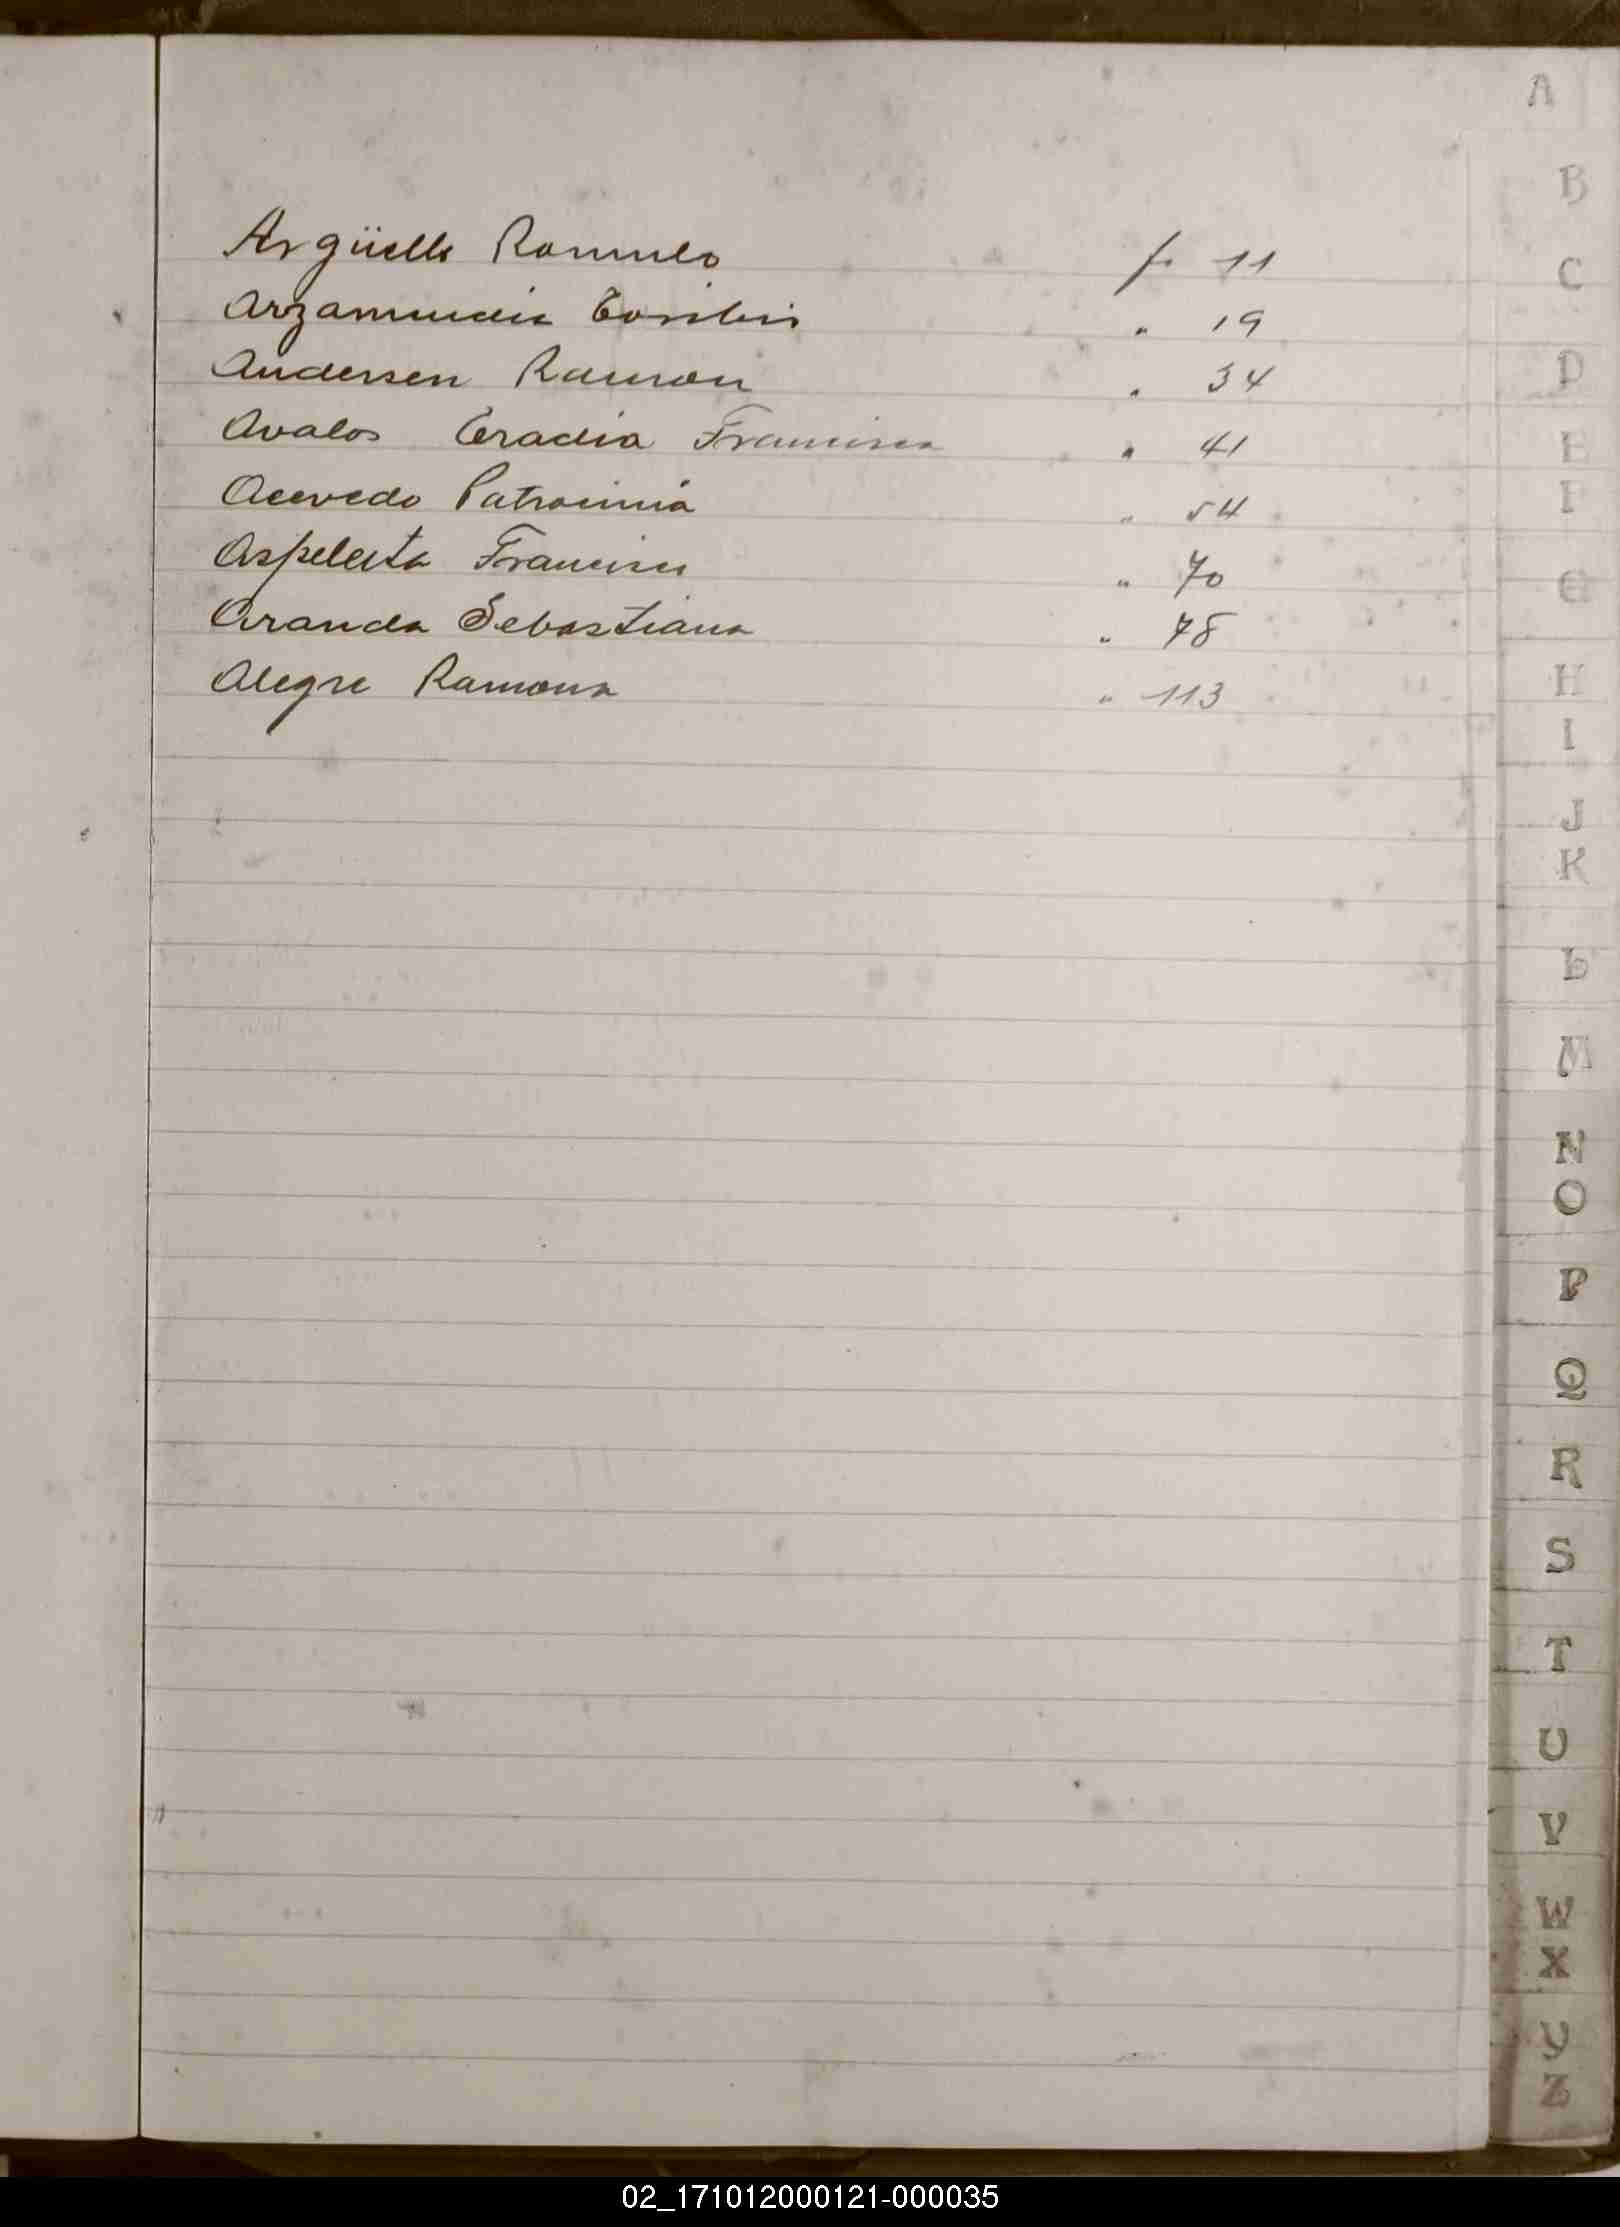 A
Argüello Romulo f. 11
Arzamendia Toribio " 19
Andersen Ramon " 34
Avalos Eradia Francisca " 41
Acevedo Patrocinia " 54
Aspeleita Francisco " 70
Aranda Sebastiana " 78
Alegre Ramona " 113
B
C
D
E
F
G
H
I
J
K
L
M
N
O
P
Q
R
S
T
U
V
W
X
Y
Z
02_171012000121-000035